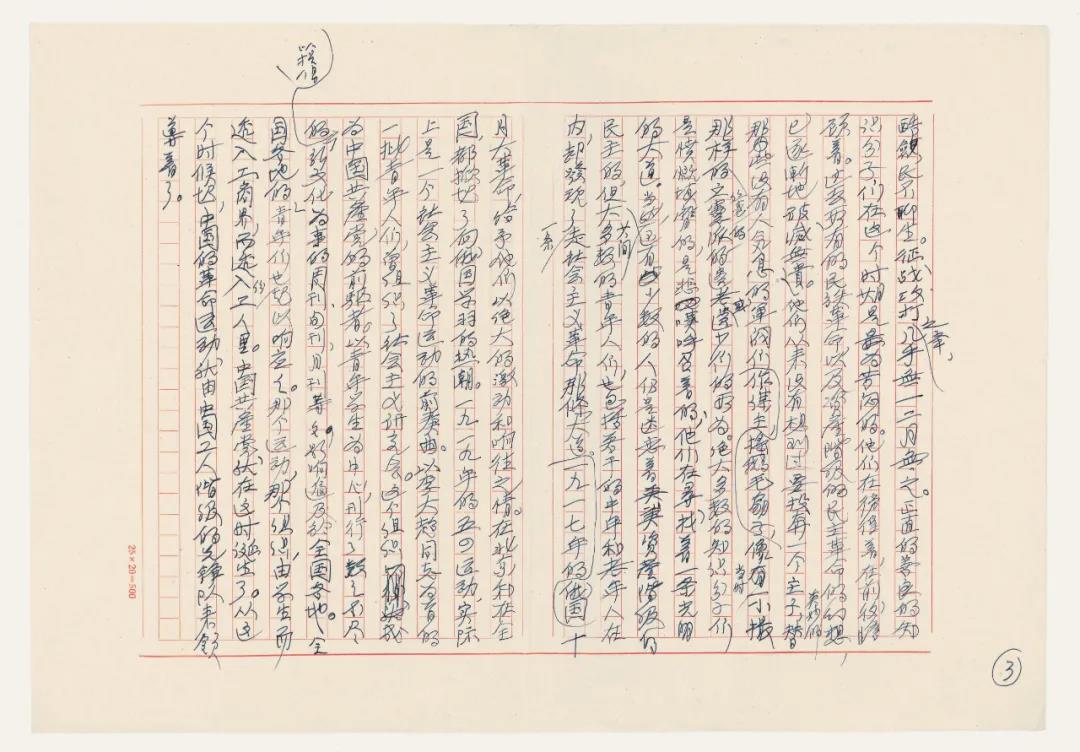 酷，饿民不聊生。征战之事，几乎无一二月无之。正直的善良的知
识分子们在这个时期是最为苦闷的。他们在徬徨着，在前后瞻
顾着。过去所有的民族革命以及资产阶级的民主革命的幻想
已逐渐地破灭无遗。他们从来没有想到过要投奔一个主子，替
那些没有人分息的军阀们作谋主，摇鹅毛扇子，像当时有一小撮
那样的变派的遗老遗少们的所为。绝大多数的知识分子们
是愤慨填膺的，是想呼号着的，他们在寻找着一条光明
的大道。当然，还有少数的人仍是迷恋着英美资产阶级的
民主的，但大多数的青年人们，也包括若干的中年和老年人在
内，却发现了走社会主义革命那一条大道。一九一七年的俄国十
月大革命，给予他们以绝大的激动和响往之情。在北京和在全
国，都掀起了向俄国学习的热潮。一九一九年的五四运动，实际
上是一个社会主义革命运动的前奏曲。以李大钊同志为首的
一批青年人们，曾组织了社会主义研究会。这个组织
为中国共产党的前驱者。以青年学生为中心，刊行了数之不尽
的新文化为事的周刊、旬刊、月刊等，影响遍及于全国各地。全
国各地的青年们也起以响应之。那个运动，那个组织，由学生而
述入工商界，而述入工人里。中国共产党就在这时诞生了。从这
个时候起，中国的革命运动就由中国工人阶级的先锋队来领
导着了。
25×20=500
3